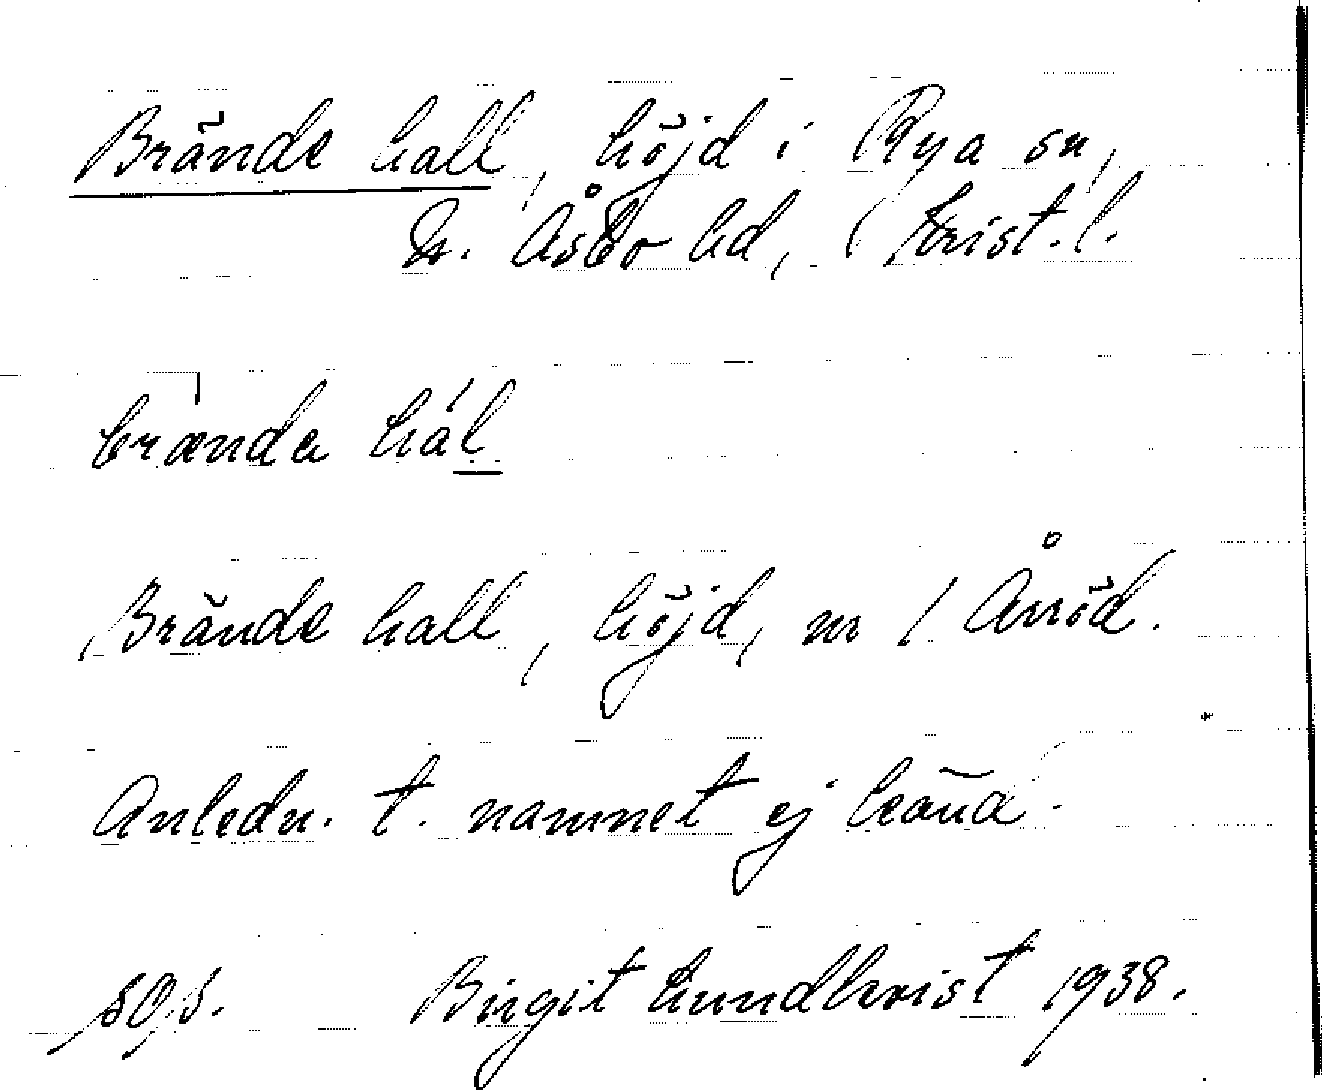 Brände hall, höjd i Rya sn,
N. Åsbo hd, Krist. l.
brænda hál
Brände hall, höjd, nr 1 Årröd.
Anledn. t. namnet ej känd.
Birgit Lundkvist 1938.